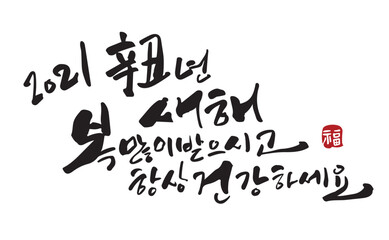 2021 辛丑년
새해
복많이받으시고
항상건강하세요
福